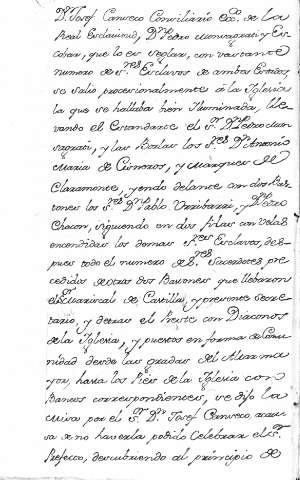 Dn. Josef Canveco Conciliario Ecco. de la
Real Esclavitud, Dn. Pedro Monsagrati y Es-
cobar, que lo es seglar, con bastante
numero de Sres. Esclavos de ambos Estados,
se salio procesionalmente á la Iglesia
la que se hallaba bien Iluminada, lle-
vando el Estandarte el Sr. Dn. Pedro Mon-
sagrati, y las Borlas los Sres. Dn. Antonio
Maria de Cisneros, y Marques de
Claramonte, yendo delante con dos Bas-
tones los Sres. Dn. Pablo Urribarri, y Dn. Pedro
Chacon, siguiendo en dos filas con velas
encendidas los demas Sres. Esclavos, des-
pues todo el numero de Sres. Sacerdotes pre-
cedidos de otros dos Bastones que llebaron
el Sr. Mariscal de Castilla, y presente Secre-
tario, y detras el Preste con Diaconos
de la Iglesia, y puestos en forma de Comu-
nidad desde las gradas del Altar ma
yor, hasta los Pies de la Iglesia con
Bancos correspondientes, se dijo la
Misa por el Sr. Dn. Josef Canveco, a cau-
sa de no haverla podido Celebrar el Sr.
Prefecto, descubriendo al principio de